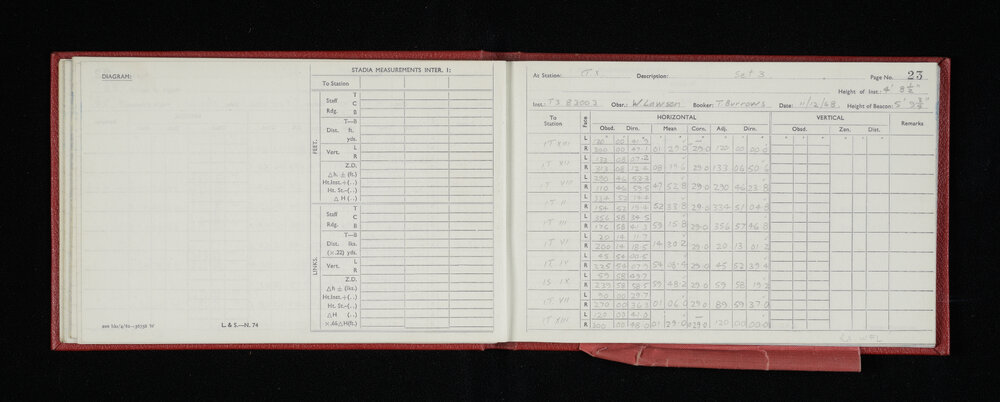 DIAGRAM:
L. & S.—N. 74
STADIA MEASUREMENTS INTER. 1:
To Station
FEET.
Staff T
C
Rdg. B
T—B
Dist. ft.
yds.
Vert. L
R
Z.D.
Δh ± (ft.)
Ht.Inst.+(..)
Ht. St.—(..)
Δ H (..)
LINKS.
Staff T
C
Rdg. B
T—B
Dist. lks.
(×.22) yds.
Vert. L
R
Z.D.
Δh ± (lks.)
Ht.Inst.+(..)
Ht. St.—(..)
ΔH (..)
×.66ΔH(ft.)
At Station: IT X Description: Set 3 Page No. 23
Height of Inst.: 4' 8½"
Inst.: T3 82003 Obsr.: W Lawson Booker: T Burrows Date: 11/12/68 Height of Beacon: 5'
To Station Face HORIZONTAL VERTICAL Remarks
Obsd. Dirn. Mean Corn. Adj. Dirn. Obsd. Zen. Dist.
IT XIII L 120 00
R 300 00 01 29.0 29.0 120 00 00.0
IT XII L 133 08 07.2
R 313 08 12.4 08 29.0 133 06 50.6
IT VIII L 290 46 53.3
R 110 46 59.5 47 52.8 29.0 290 46 23.8
IT II L 334 52
R 154 52 19.4 52 33.8 29.0 334 51 04.8
IT III L 356 58 34.5
R 176 58 41.3 59 29.0 356 57 46.8
IT VI L 20 14 11.7
R 200 14 18.5 14 30.2 29.0 20 13 01.2
IT IV L 45 54 00.5
R 225 54 07.9 54 08.4 29.0 45 52 39.4
IS IX L 59 58 49.7
R 239 58 58.5 59 48.2 29.0 59 58 19.2
IT VII L 90 00 29.7
R 270 00 36.3 01 06.0 29.0 89 59 37.0
IT XIII L 120 00 41.0
R 300 00 48.0 01 29.0 29.0 120 00 00.0